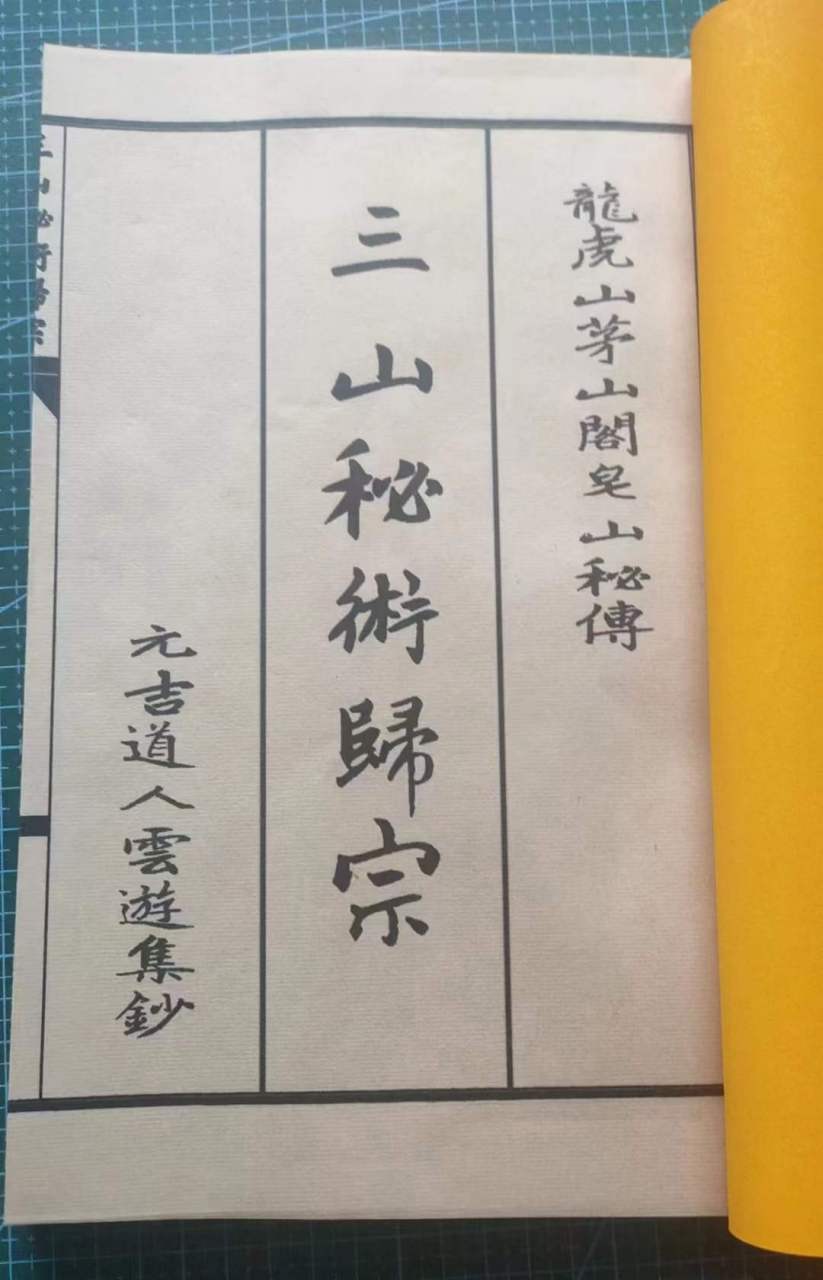 龍虎山茅山閣皂山秘傳
三山秘術歸宗
元吉道人雲遊集鈔
三山秘術歸宗